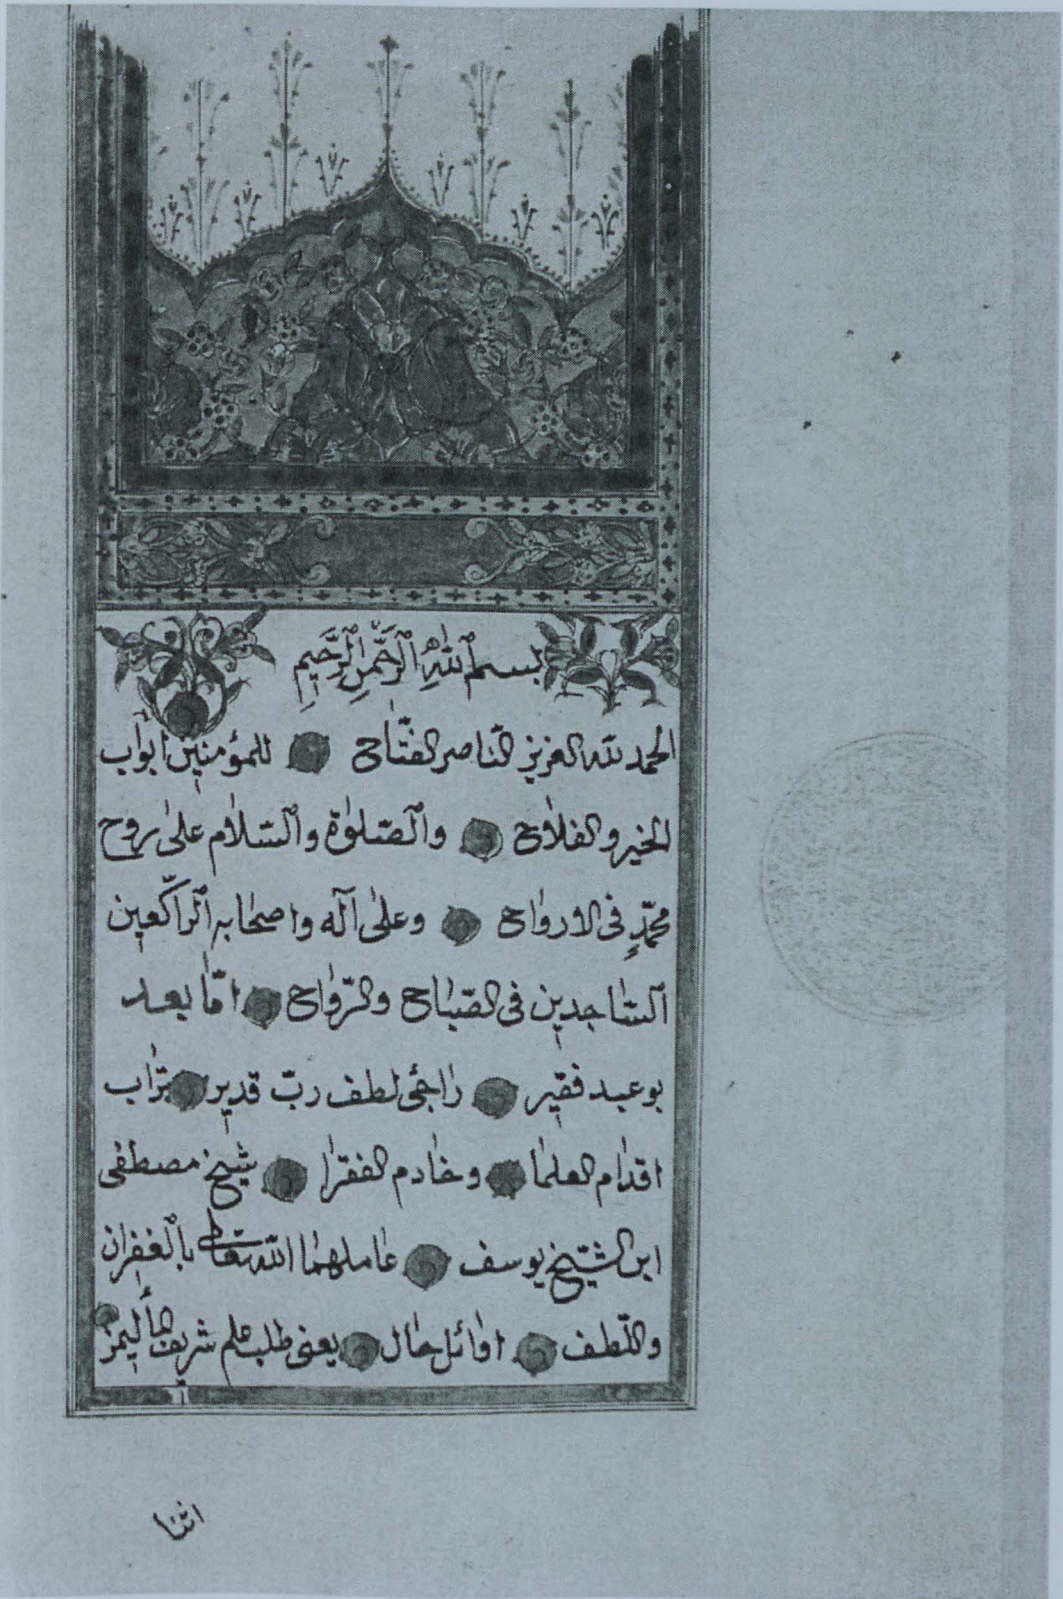 بسم ٱللّٰهِ ٱلرَّحْمٰنِ ٱلرَّحِيمِ
الحمد لله العزيز النّاصر الفتّاح للمؤمنين ابواب
الخير والفلاح والصّلوٰة والسّلام علىٰ روح
محمّدٍ فى الارواح وعلىٰ آله واصحابه الرّاكعين
السّاجدين فى الصّباح والرّواح امّا بعد
بو عبد فقير راجئ لطف ربّ قدير تراب
اقدام العلما وخادم الفقرا شيخ مصطفى
ابن الشّيخ يوسف عاملهما اللّه تعالى بالغفران
واللّطف اوائل حال يعنى طلب علم شريف
اثنا